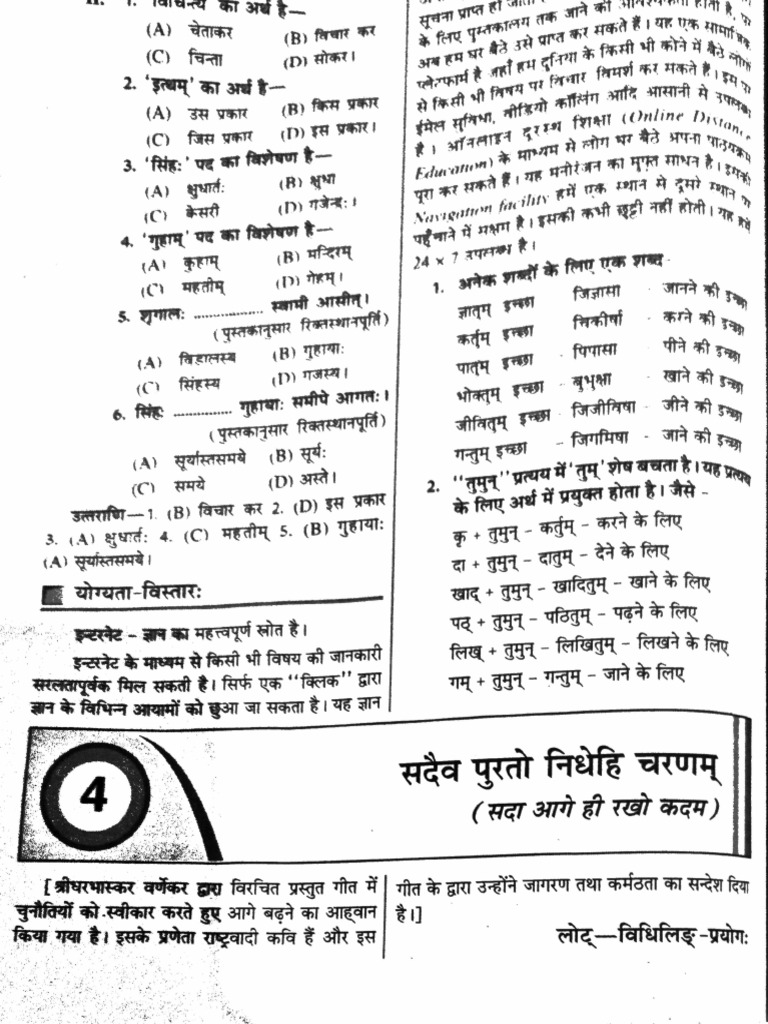 II. 1. 'विचिन्त्य' का अर्थ है—
(A) चेताकर (B) विचार कर
(C) चिन्ता (D) सोकर।
2. 'इत्थम्' का अर्थ है—
(A) उस प्रकार (B) किस प्रकार
(C) जिस प्रकार (D) इस प्रकार।
3. 'सिंहः' पद का विशेषण है—
(A) क्षुधार्तः (B) क्षुधा
(C) केसरी (D) गजेन्द्रः।
4. 'गुहाम्' पद का विशेषण है—
(A) कुहाम् (B) मन्दिरम्
(C) महतीम् (D) गेहम्।
5. शृगालः .................. स्वामी आसीत्।
(पुस्तकानुसार रिक्तस्थानपूर्ति)
(A) विडालस्य (B) गुहायाः
(C) सिंहस्य (D) गजस्य।
6. सिंहः ............... गुहायाः समीपे आगतः।
(पुस्तकानुसार रिक्तस्थानपूर्ति)
(A) सूर्यास्तसमये (B) सूर्यः
(C) समये (D) अस्ते।
उत्तराणि—1. (B) विचार कर 2. (D) इस प्रकार
3. (A) क्षुधार्तः 4. (C) महतीम् 5. (B) गुहायाः
(A) सूर्यास्तसमये।
योग्यता-विस्तारः
इन्टरनेट – ज्ञान का महत्त्वपूर्ण स्रोत है।
इन्टरनेट के माध्यम से किसी भी विषय की जानकारी
सरलतापूर्वक मिल सकती है। सिर्फ एक "क्लिक" द्वारा
ज्ञान के विभिन्न आयामों को छुआ जा सकता है। यह ज्ञान
सूचना प्राप्त हो जाती
के लिए पुस्तकालय तक जाने की आवश्यकता होती है, पर
अब हम घर बैठे उसे प्राप्त कर सकते हैं। यह एक सामाजिक
प्लेटफार्म है जहाँ हम दुनिया के किसी भी कोने में बैठे लोगों
से किसी भी विषय पर विचार विमर्श कर सकते हैं। इस पर
ईमेल सुविधा, वीडियो कॉलिंग आदि आसानी से उपलब्ध
है। ऑनलाइन दूरस्थ शिक्षा (Online Distance
Education) के माध्यम से लोग घर बैठे अपना पाठ्यक्रम
पूरा कर सकते हैं। यह मनोरंजन का मुफ्त साधन है। इसकी
Navigation facility हमें एक स्थान से दूसरे स्थान पर
पहुँचाने में सक्षम है। इसकी कभी छुट्टी नहीं होती। यह हमें
24 × 7 उपलब्ध है।
1. अनेक शब्दों के लिए एक शब्द -
ज्ञातुम् इच्छा जिज्ञासा - जानने की इच्छा
कर्तुम् इच्छा चिकीर्षा - करने की इच्छा
पातुम् इच्छा - पिपासा - पीने की इच्छा
भोक्तुम् इच्छा - बुभुक्षा - खाने की इच्छा
जीवितुम् इच्छा - जिजीविषा - जीने की इच्छा
गन्तुम् इच्छा – जिगमिषा - जाने की इच्छा
2. "तुमुन्" प्रत्यय में 'तुम्' शेष बचता है। यह प्रत्यय
के लिए अर्थ में प्रयुक्त होता है। जैसे -
कृ + तुमुन् – कर्तुम् – करने के लिए
दा + तुमुन् – दातुम् – देने के लिए
खाद् + तुमुन् – खादितुम् – खाने के लिए
पठ् + तुमुन् – पठितुम् – पढ़ने के लिए
लिख् + तुमुन् – लिखितुम् – लिखने के लिए
गम् + तुमुन् – गन्तुम् – जाने के लिए
4
सदैव पुरतो निधेहि चरणम्
(सदा आगे ही रखो कदम)
[श्रीधरभास्कर वर्णेकर द्वारा विरचित प्रस्तुत गीत में
चुनौतियों को स्वीकार करते हुए आगे बढ़ने का आह्वान
किया गया है। इसके प्रणेता राष्ट्रवादी कवि हैं और इस
गीत के द्वारा उन्होंने जागरण तथा कर्मठता का सन्देश दिया
है।]
लोट्—विधिलिङ्-प्रयोगः